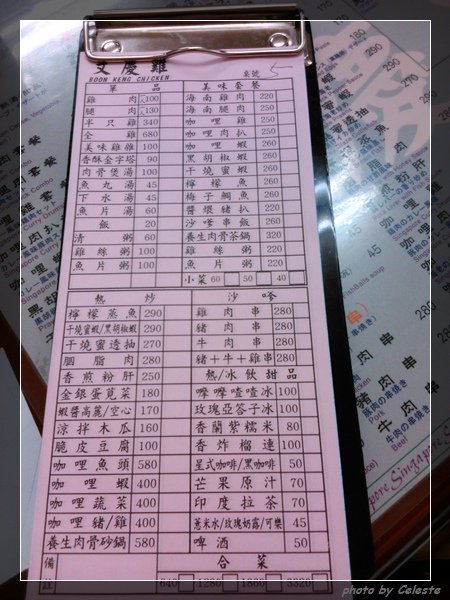 文慶雞
BOON KENG CHICKEN
桌號 5
單品
雞肉 100
腿肉 130
半只雞 340
全雞 680
美味雞雜 100
香酥金字塔 90
肉骨煲湯 100
魚丸湯 45
下水湯 45
魚片湯 60
飯 20
清粥 60
雞絲粥 100
魚片粥 100
美味套餐
海南雞肉 220
海南腿肉 250
咖哩雞 220
咖哩肉扒 220
咖哩蝦 260
黑胡椒蝦 260
干燒蜜蝦 260
檸檬魚 260
梅子鯛魚 260
醬煨豬扒 220
沙嗲串飯 260
養生肉骨茶鍋 320
雞絲粥 220
魚片粥 220
小菜 60 50 40
熱炒
檸檬蒸魚 290
干燒蜜蝦/黑胡椒蝦 290
干燒蜜透抽 270
胭脂肉 280
香煎粉肝 250
金銀蛋莧菜 180
蝦醬高麗/空心 170
涼拌木瓜 160
脆皮豆腐 100
咖哩魚頭 580
咖哩蝦 400
咖哩蔬菜 400
咖哩豬/雞 400
養生肉骨砂鍋 580
沙嗲
雞肉串 280
豬肉串 280
牛肉串 280
豬+牛+雞串 280
熱/冰飲甜品
嚤嚤喳喳冰 100
玫瑰亞答子冰 100
香蘭紫糯米 80
香炸榴連 100
星式咖啡/黑咖啡 50
芒果原汁 70
印度拉茶 70
薏米水/玫瑰奶露/可樂 45
啤酒 50
備註
合菜
640 1280 1860 3320
photo by Celeste